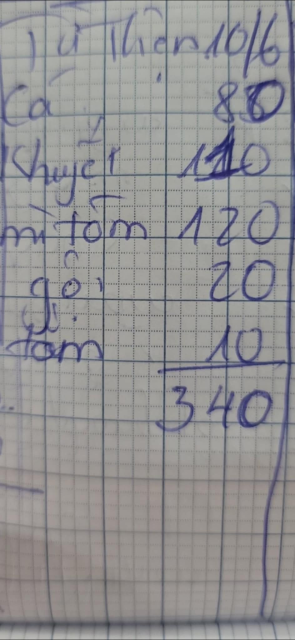 Tú Thiên 10/6
Cá 80
Khuyết 110
mì tôm 120
gội 20
tăm 10
340